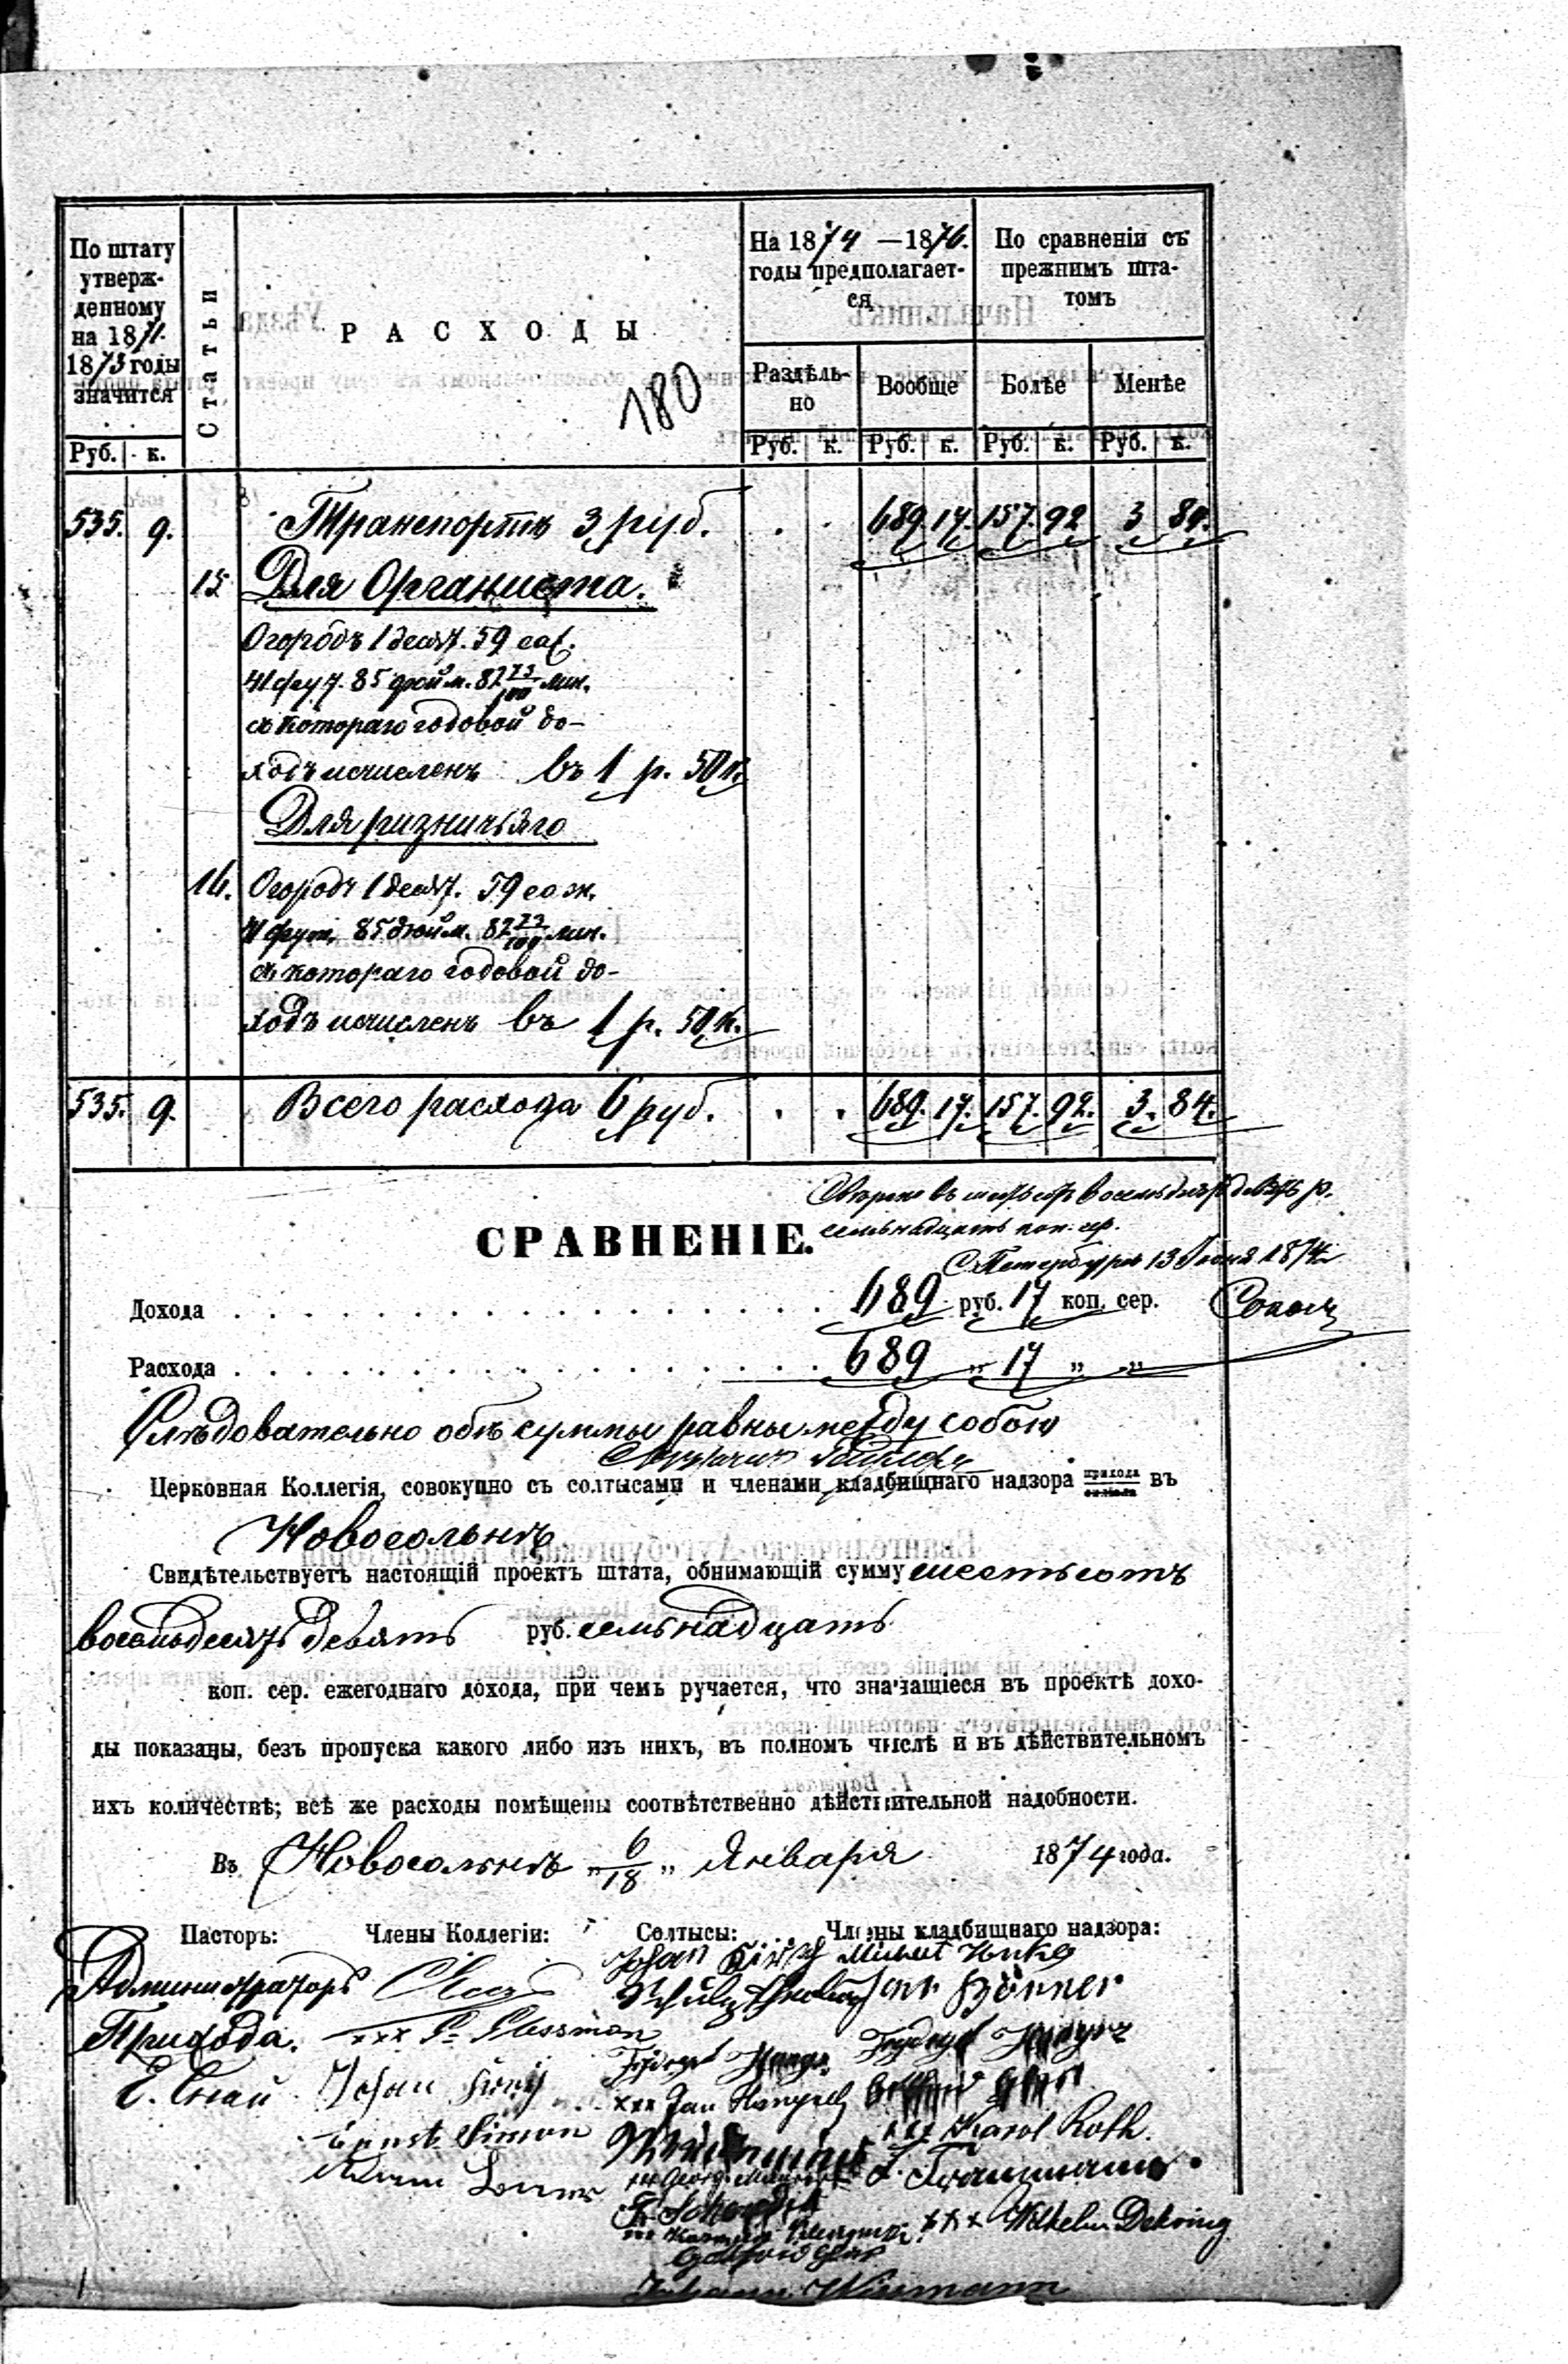 По штату утверж-
денному
на 1871.
1873 годы
значится
Статьи
РАСХОДЫ
180
На 1874 —1876.
годы предполагает-
ся
По сравненіи съ
прежнимъ шта-
томъ
Раздѣль-
но
Вообще
Болѣе
Менѣе
Руб. к. Руб. к. Руб. к. Руб. к. Руб. к.
535. 9. Транспортъ 3 руб. . . 689. 17. 157. 92 3 84.
15 Для Органиста.
Огородъ 1 десят. 59 саж.
41 фут. 85 дюйм. 82 73/100 лин.
съ котораго годовой до-
ходъ исчисленъ въ 1 р. 50 к.
Для ризничьяго
16. Огородъ 1 десят. 59 саж.
41 фут. 85 дюйм. 82 73/100 лин.
съ котораго годовой до-
ходъ исчисленъ въ 1 р. 50 к.
535. 9. Всего расхода 6 руб. . . 689. 17. 157. 92. 3. 84.
в восемьдесятъ девять р.
семьнадцать коп. сер.
СРАВНЕНІЕ.
С.Петербургъ 13 1874
Дохода 689 руб. 17 коп. сер.
Расхода 689 „ 17 „ „
Слѣдовательно обѣ суммы равны между собою
Церковная Коллегія, совокупно съ солтысами и членами кладбищнаго надзора прихода въ
Новосольнѣ
Свидѣтельствуетъ настоящій проектъ штата, обнимающій сумму шестьсотъ
восемьдесятъ девять руб. семьнадцать
коп. сер. ежегоднаго дохода, при чемъ ручается, что значащіеся въ проектѣ дохо-
ды показаны, безъ пропуска какого либо изъ нихъ, въ полномъ числѣ и въ дѣйствительномъ
ихъ количествѣ; всѣ же расходы помѣщены соотвѣтственно дѣйствительной надобности.
Въ Новосольнѣ „6/18„ Января 1874 года.
Пасторъ: Члены Коллегіи: Солтысы: Члены кладбищнаго надзора:
Администраторъ
Прихода.
Johan
xxx Jan
Ernst Simon
xxx Karol Roth.
xxx Georg
xxx Wilhelm Dehring
Johann